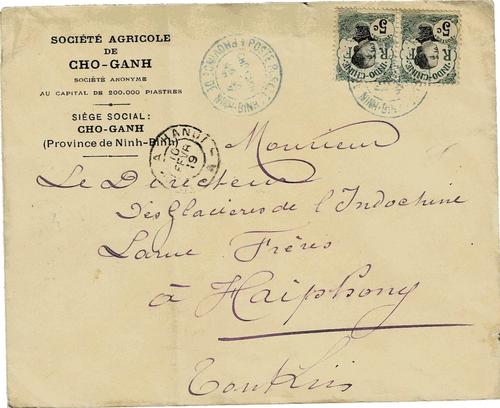 SOCIÉTÉ AGRICOLE
DE
CHO-GANH
SOCIÉTÉ ANONYME
AU CAPITAL DE 200.000 PIASTRES
SIÈGE SOCIAL:
CHO-GANH
(Province de Ninh-Binh)
5c 5c
R F R F
INDO-CHINE INDO-CHINE
NINH-BINH
NINH-BINH
HANOI
10
FEVR
19
Monsieur
Le Directeur
Des Glacières de l'Indochine
Larue Frères
à Haiphong
Tonkin